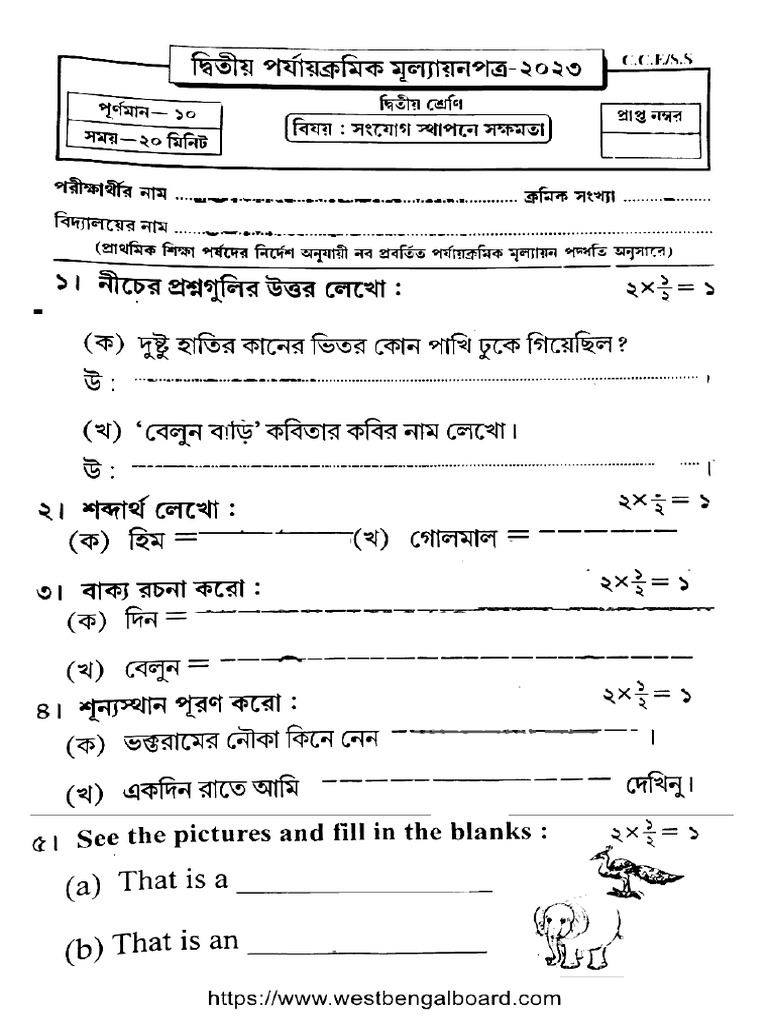 দ্বিতীয় পর্যায়ক্রমিক মূল্যায়নপত্র-২০২৩
C.C.E/S.S
পূর্ণমান— ১০
সময়—২০ মিনিট
দ্বিতীয় শ্রেণি
বিষয় : সংযোগ স্থাপনে সক্ষমতা
প্রাপ্ত নম্বর
পরীক্ষার্থীর নাম ........................ ক্রমিক সংখ্যা ............
বিদ্যালয়ের নাম ........................
(প্রাথমিক শিক্ষা পর্ষদের নির্দেশ অনুযায়ী নব প্রবর্তিত পর্যায়ক্রমিক মূল্যায়ন পদ্ধতি অনুসারে)
১। নীচের প্রশ্নগুলির উত্তর লেখো : ২×১/২= ১
(ক) দুষ্টু হাতির কানের ভিতর কোন পাখি ঢুকে গিয়েছিল?
উ : ........................ ।
(খ) ‘বেলুন বাড়ি’ কবিতার কবির নাম লেখো।
উ : ........................ ।
২। শব্দার্থ লেখো : ২×÷২= ১
(ক) হিম = ____________ (খ) গোলমাল = ____________
৩। বাক্য রচনা করো : ২×১/২= ১
(ক) দিন = ____________
(খ) বেলুন = ____________
৪। শূন্যস্থান পূরণ করো : ২×১/২= ১
(ক) ভক্তরামের নৌকা কিনে নেন ____________ ।
(খ) একদিন রাতে আমি ____________ দেখিনু।
৫। See the pictures and fill in the blanks : ২×১/২= ১
(a) That is a ____________
(b) That is an ____________
https://www.westbengalboard.com